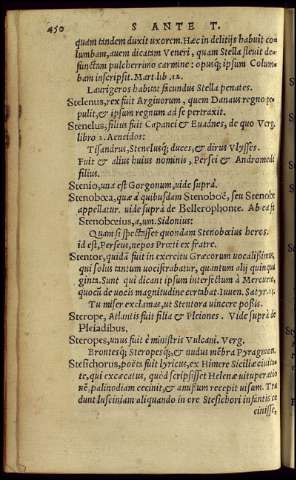 450 S ANTE T.
quam tandem duxit uxorem. Hæc in delitijs habuit co
lumbam, auem dicatam Veneri, quam Stella fleuit de-
functam pulcherrimo carmine: opusq; ipsum Colum
bam inscripsit. Mart. lib. 12.
Laurigeros habitat facundus Stella penates.
Stelenus, rex fuit Argiuorum, quem Danaus regno pe
pulit, & ipsum regnum ad se pertraxit.
Stenelus, filius fuit Capanei & Euadnes, de quo Verg.
libro 2. Aeneidos:
Tisandrus, Stenelusq; duces, & dirus Vlysses.
Fuit & alius huius nominis, Persei & Andromedæ
filius.
Stenio, una est Gorgonum, uide supra.
Stenobœa, quæ à quibusdam Stenoboë, seu Stenoëe
appellatur. uide suprà de Bellerophonte. Ab ea fit
Stenobœeius, a, um. Sidonius:
Quam si spectisset quondam Stenobœius heros.
id est, Perseus, nepos Prœti ex fratre.
Stentor, quidã fuit in exercitu Græcorum uocalissimus,
qui solus tantum uociferabatur, quantum alij quinqua
ginta. Sunt qui dicant ipsum interfectum à Mercurio,
quocũ de uocis magnitudine certabat. Iuuen. Satyr. 13.
Tu miser exclamas, ut Stentora uincere possis.
Sterope, Atlantis fuit filia & Pleiones. Vide suprà de
Pleiadibus.
Steropes, unus fuit è ministris Vulcani. Verg.
Brontesq; Steropesq; & nudus mẽbra Pyragmon.
Stesichorus, poëta fuit lyricus, ex Himere Siciliæ ciuita
te, qui excæcatus, quòd scripsisset Helenæ uituperatio
nẽ, palinodiam cecinit, & amissum recepit uisum. Tra
dunt lusciniam aliquando in ore Stesichori infantis ce
cinisse,